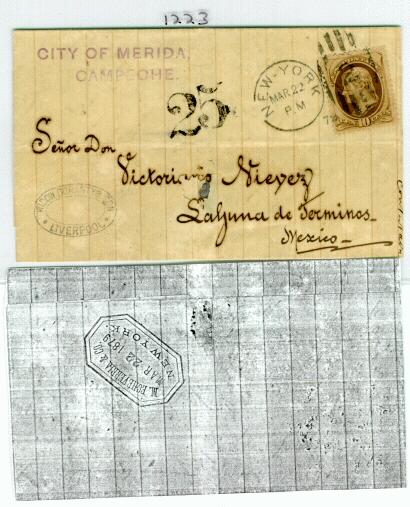 1223
CITY OF MERIDA,
CAMPECHE.
25
NEW-YORK
MAR 22
P M
10
Señor Don
Victoriano Nievez
Laguna de Terminos
Mexico
LIVERPOOL
& CO.
MAR 22 1879
NEW YORK.